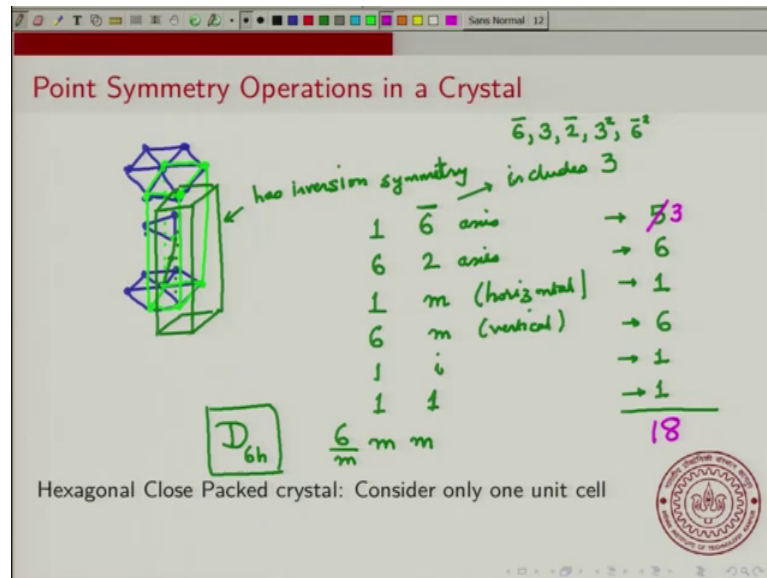 T Sans Normal 12
Point Symmetry Operations in a Crystal
6̅, 3, 2̅, 3², 6̅²
has inversion symmetry
includes 3
1 6̅ axis → 5 3
6 2 axis → 6
1 m (horizontal) → 1
6 m (vertical) → 6
1 i → 1
1 1 → 1
18
D6h
6/m m m
Hexagonal Close Packed crystal: Consider only one unit cell
INDIAN INSTITUTE OF TECHNOLOGY KANPUR